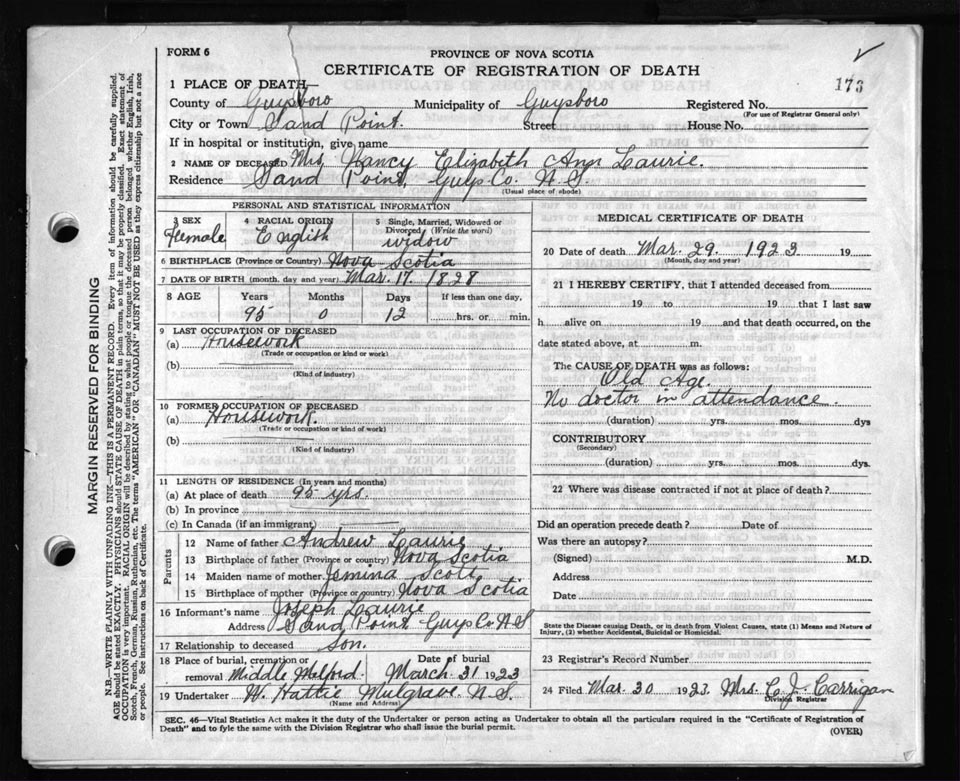 FORM 6
PROVINCE OF NOVA SCOTIA
CERTIFICATE OF REGISTRATION OF DEATH
173
1 PLACE OF DEATH—
County of Guysboro Municipality of Guysboro Registered No.
(For use of Registrar General only)
City or Town Sand Point. Street House No.
If in hospital or institution, give name
2 NAME OF DECEASED Mrs Nancy Elizabeth Ann Laurie.
Residence Sand Point, Guys. Co. N.S.
(Usual place of abode)
PERSONAL AND STATISTICAL INFORMATION
3 SEX
Female
4 RACIAL ORIGIN
English
5 Single, Married, Widowed or
Divorced (Write the word)
widow
6 BIRTHPLACE (Province or Country) Nova Scotia
7 DATE OF BIRTH (month, day and year) Mar. 17. 1828
8 AGE Years Months Days If less than one day,
95 0 12 hrs. or min.
9 LAST OCCUPATION OF DECEASED
(a) Housework
(Trade or occupation or kind or work)
(b)
(Kind of industry)
10 FORMER OCCUPATION OF DECEASED
(a) Housework.
(Trade or occupation or kind of work)
(b)
(Kind of industry)
11 LENGTH OF RESIDENCE (In years and months)
(a) At place of death 95 yrs.
(b) In province
(c) In Canada (if an immigrant)
Parents
12 Name of father Andrew Laurie
13 Birthplace of father (Province or country) Nova Scotia
14 Maiden name of mother Jemina Scott
15 Birthplace of mother (Province or country) Nova Scotia
16 Informant's name Joseph Laurie
Address Sand Point Guys Co. N S
17 Relationship to deceased son.
18 Place of burial, cremation or
removal Middle Melford.
Date of burial
March 31 1923
19 Undertaker W. Hattie Mulgrave N. S.
(Name and Address)
MEDICAL CERTIFICATE OF DEATH
20 Date of death Mar. 29. 1923 19
(Month, day and year)
21 I HEREBY CERTIFY, that I attended deceased from
19 to 19 that I last saw
h alive on 19 and that death occurred, on
date stated above, at m.
The CAUSE OF DEATH was as follows:
Old Age.
No doctor in attendance.
(duration) yrs. mos. dys
CONTRIBUTORY
(Secondary)
(duration) yrs. mos. dys.
22 Where was disease contracted if not at place of death?
Did an operation precede death? Date of
Was there an autopsy?
(Signed) M.D.
Address
Date
State the Disease causing Death, or in death from Violent Causes, state (1) Means and Nature of
Injury, (2) whether Accidental, Suicidal or Homicidal.
23 Registrar's Record Number
24 Filed Mar. 30 1923. Mrs. C. J. Carrigan
Division Registrar
SEC. 46—Vital Statistics Act makes it the duty of the Undertaker or person acting as Undertaker to obtain all the particulars required in the "Certificate of Registration of
Death" and to fyle the same with the Division Registrar who shall issue the burial permit.
(OVER)
MARGIN RESERVED FOR BINDING
N.B.—WRITE PLAINLY WITH UNFADING INK—THIS IS A PERMANENT RECORD. Every item of information should be carefully supplied.
AGE should be stated EXACTLY. PHYSICIANS should STATE CAUSE OF DEATH in plain terms, so that it may be properly classified. Exact statement of
OCCUPATION is very important. RACIAL ORIGIN will be described by stating to what people or tongue the deceased person belonged whether English, Irish,
Scotch, French, German, Russian, Ruthenian, etc. The terms "AMERICAN" OR "CANADIAN" MUST NOT BE USED as they express citizenship but not a race
or people. See instructions on back of Certificate.